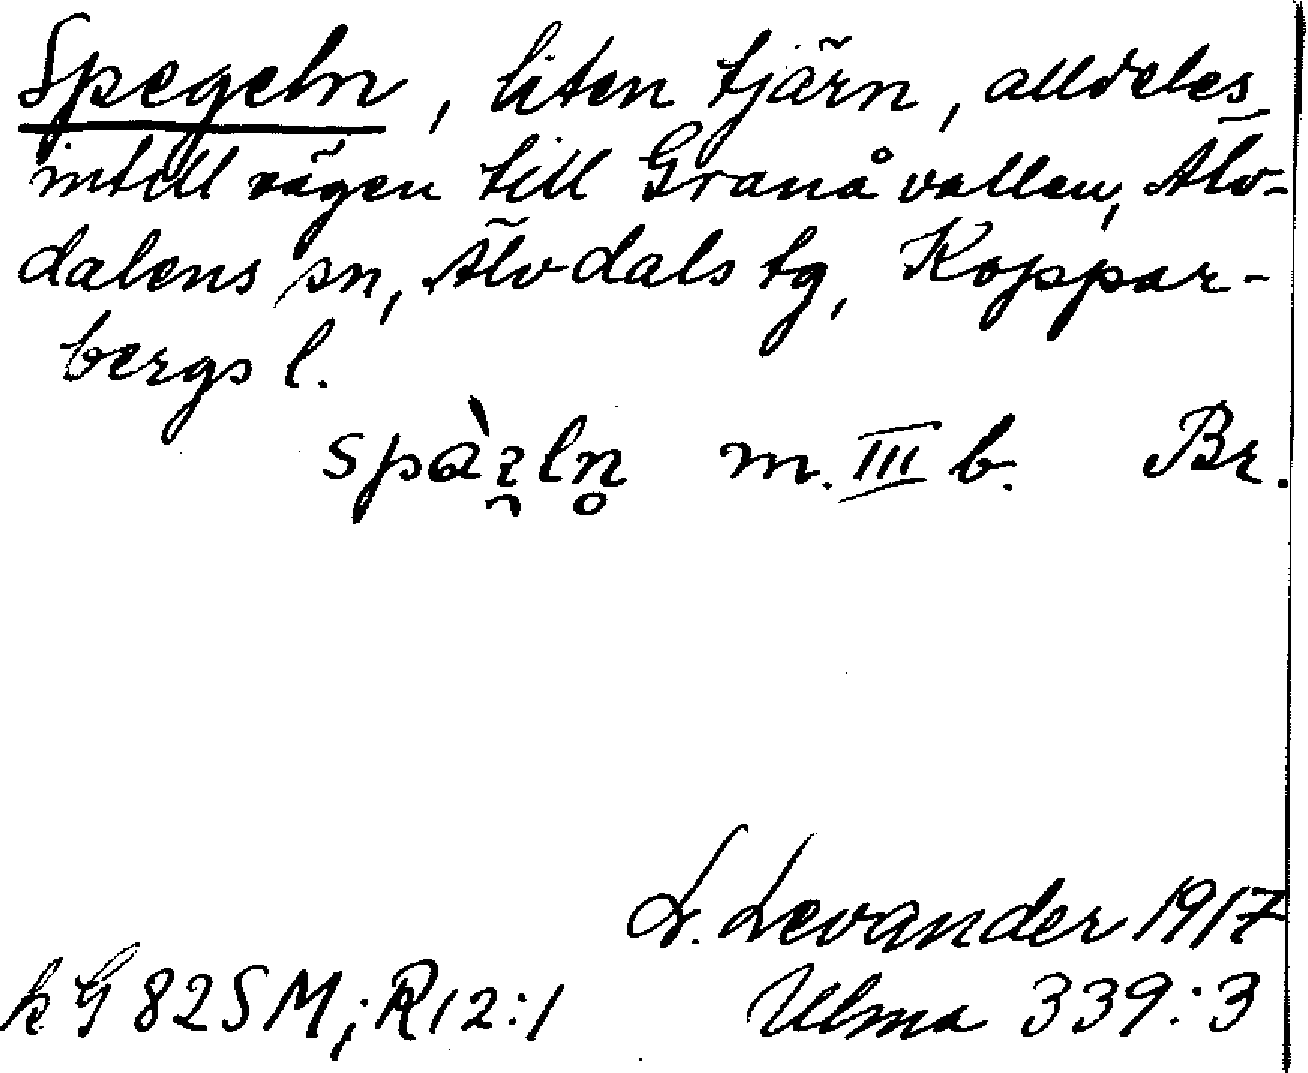 Spegeln, liten tjärn, alldeles
intill vägen till Granåvallen, Älv-
dalens sn, Älvdals tg, Koppar-
bergs l.
spàɀ̯ln̥ m. III b. Br.
L. Levander 1917
k G 82 S M; R 12:1 Ulma 339:3